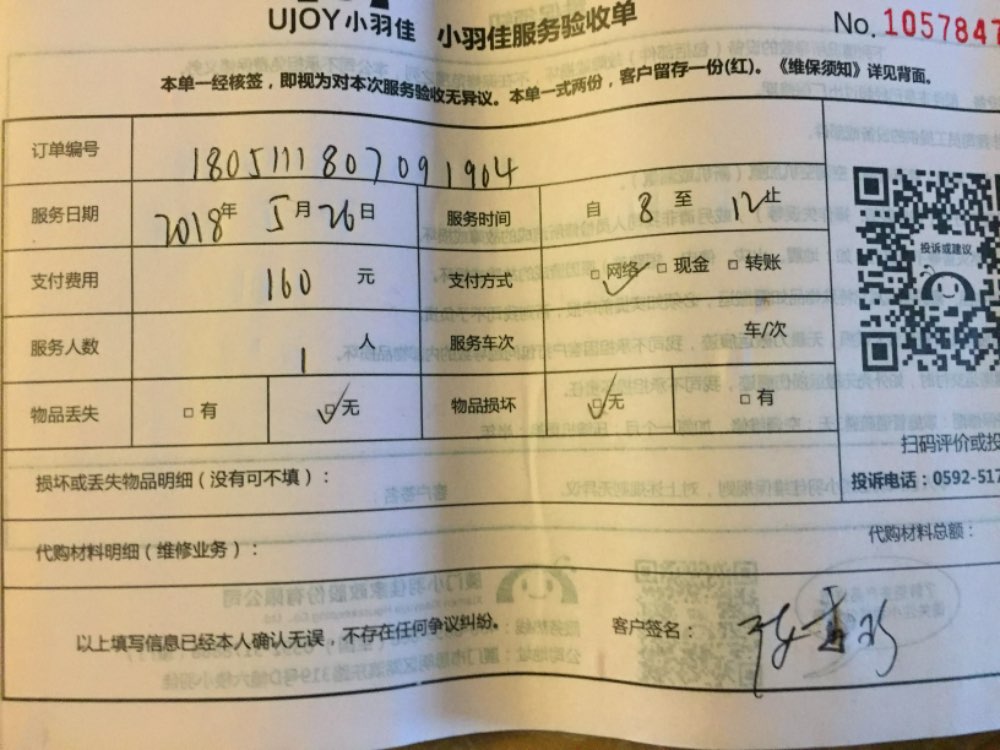 UJOY小羽佳 小羽佳服务验收单
No.1057847
本单一经核签，即视为对本次服务验收无异议。本单一式两份，客户留存一份(红)。《维保须知》详见背面。
订单编号 180511180709 1904
服务日期 2018年 5月26日 服务时间 自 8 至 12止
支付费用 160 元 支付方式 □网络 □现金 □转账
服务人数 1 人 服务车次 车/次
物品丢失 □有 □无 物品损坏 □无 □有
投诉或建议
扫码评价或投
投诉电话：0592-517
损坏或丢失物品明细（没有可不填）：
代购材料明细（维修业务）： 代购材料总额：
以上填写信息已经本人确认无误，不存在任何争议纠纷。 客户签名：